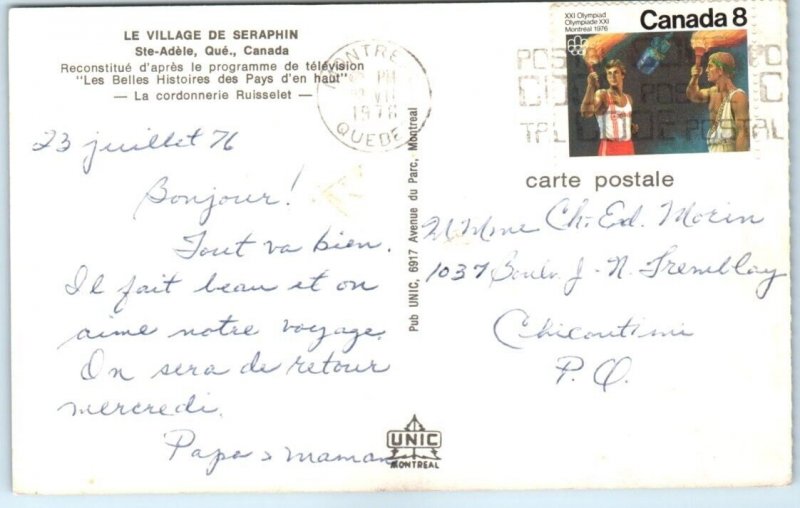 LE VILLAGE DE SERAPHIN
Ste-Adèle, Qué., Canada
Reconstitué d'après le programme de télévision
"Les Belles Histoires des Pays d'en haut"
— La cordonnerie Ruisselet —
23 juillet 76
Bonjour!
Tout va bien.
Il fait beau et on
aime notre voyage.
On sera de retour
mercredi.
Papa & maman
Pub UNIC, 6917 Avenue du Parc, Montreal
UNIC
MONTREAL
MONTRE
PM
VII
1976
QUEBE
XXI Olympiad
Olympiade XXI
Montréal 1976
Canada 8
CODE POSTAL
carte postale
M Mme Ch. Ed. Morin
1037 Boulv. J-N. Tremblay
Chicoutimi
P.Q.